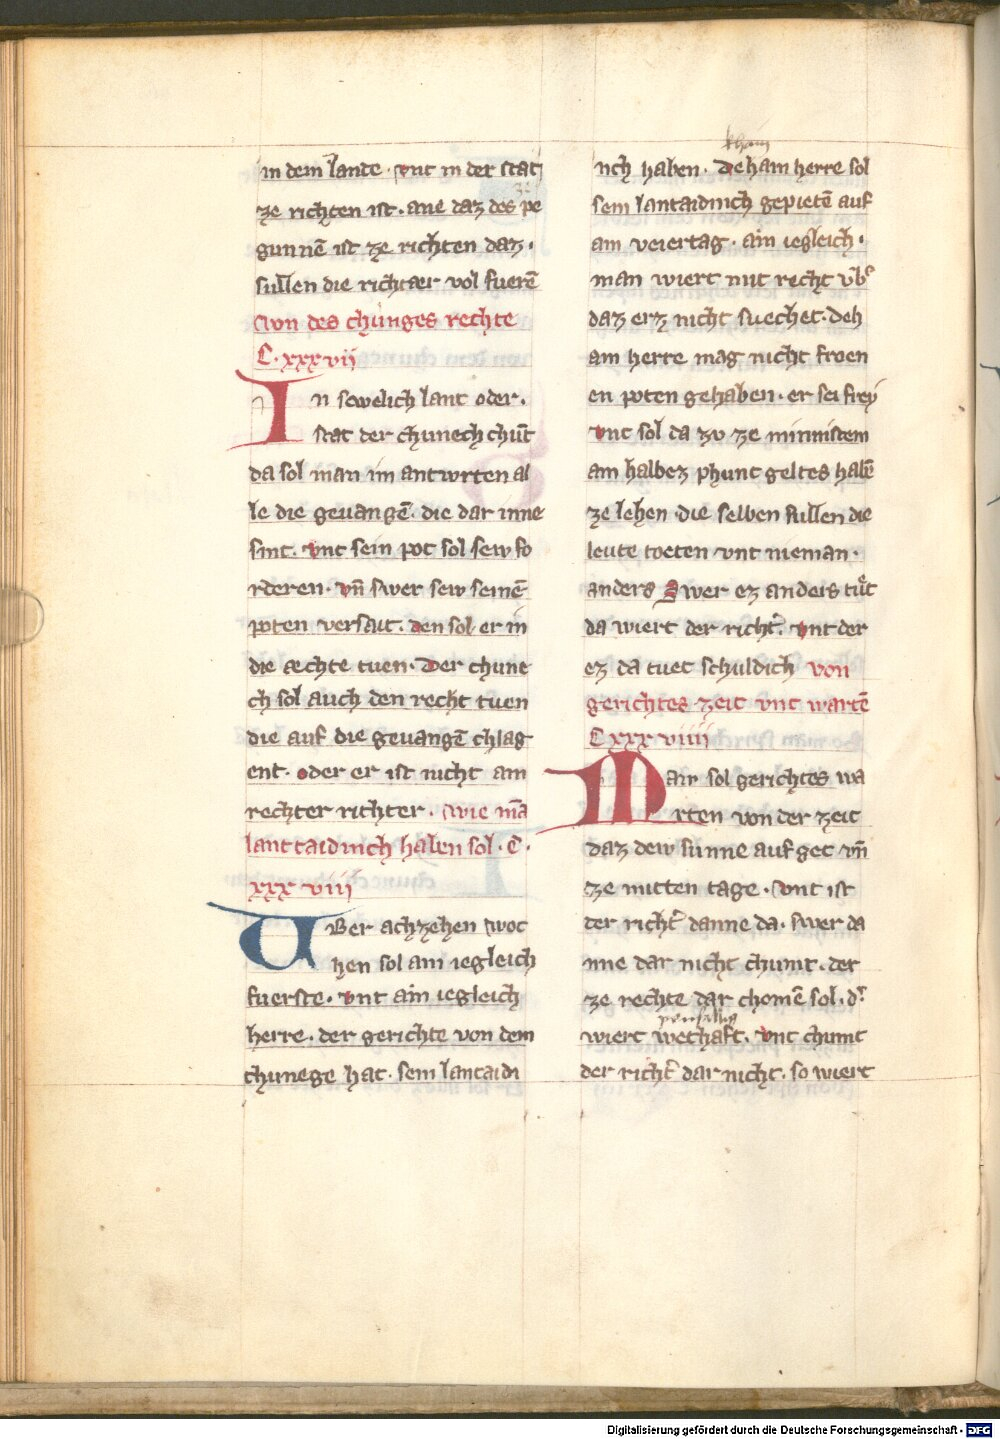 in dem lande · vnt in der stat
ze richten ist · ane daz des pe
gunnē ist ze richten daz ·
sullen die richtær vol fuerē
Von des chunges rechte
C · xxxvij
In swelich lant oder ·
stat der chunech chūt
da sol man im antwrten al
le die geuangē · die dar inne
sint · vnt sein pot sol sew fo
rderen · vn̄ swer sew seinē
poten versait · den sol er in
die æchte tuen · Der chune
ch sol auch den recht tuen
die auf die geuangē chlag
ent · oder er ist nicht ain
rechter richter · wie mā
lanttaidinch haben sol · C ·
xxx viij
Vber achzehen woc
hen sol ain iegleich
fuerste · vnt ain iegleich
herre · der gerichte von dem
chunege hat · sein lantaidi
nch haben · Dehain herre sol
sein lantaidinch gepietē auf
ain veiertag · ain iegleich ·
man wiert mit recht vb̄
daz erz nicht suechet · deh
ain herre mag nicht froen
en poten gehaben · er sei frey
vnt sol da zv ze minnistem
ain halbez phunt geltes habē
ze lehen · die selben sullen die
leute toeten vnt nieman ·
anders Swer ez anders tuͤt
da wiert der richt̄ · vnt der
ez da tuet schuldich von
gerichtes zeit vnt wartē
C xxx viiij
Man sol gerichtes wa
rten von der zeit
daz dew sunne auf get vn̄
ze mitten tage · vnt ist
der richt̄ danne da · swer da
nne dar nicht chumt · der
ze rechte dar chomē sol · d̄
wiert wethaft · vnt chumt
der richt̄ dar nicht · so wiert
Digitalisierung gefördert durch die Deutsche Forschungsgemeinschaft - DFG